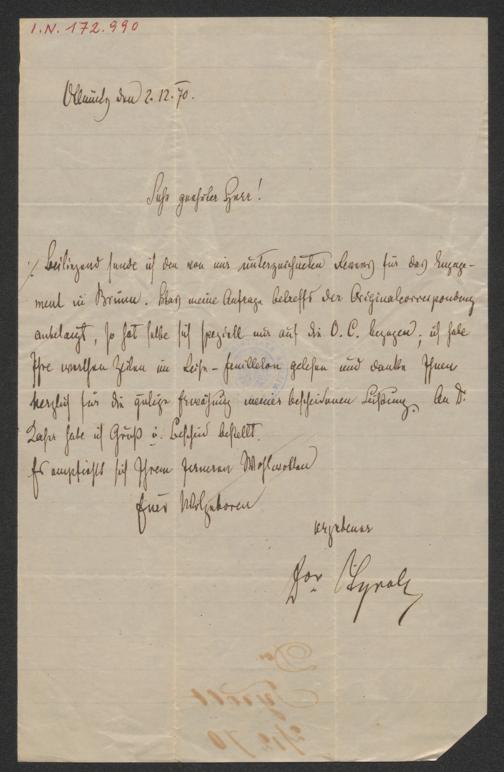 I.N. 172.990
Ollmütz den 2.12.70.
Sehr geehrter Herr!
Beiliegend sende ich den von mir unterzeichneten Revers für das Engage-
ment in Brünn. Was meine Anfrage betreffs der Originalcorrespondenz
anbelangt, so hat selbe sich speziell nur auf die O.C. bezogen; ich habe
Ihre werthen Zeilen im Feuilleton gelesen und danke Ihnen
herzlich für die gütige Erwähnung meiner bescheidenen Leistung. An D.
habe ich Gruß u. Bescheid bestellt.
Es empfiehlt sich Ihrem ferneren Wohlwollen
Euer Wolgeboren
ergebener
Dor